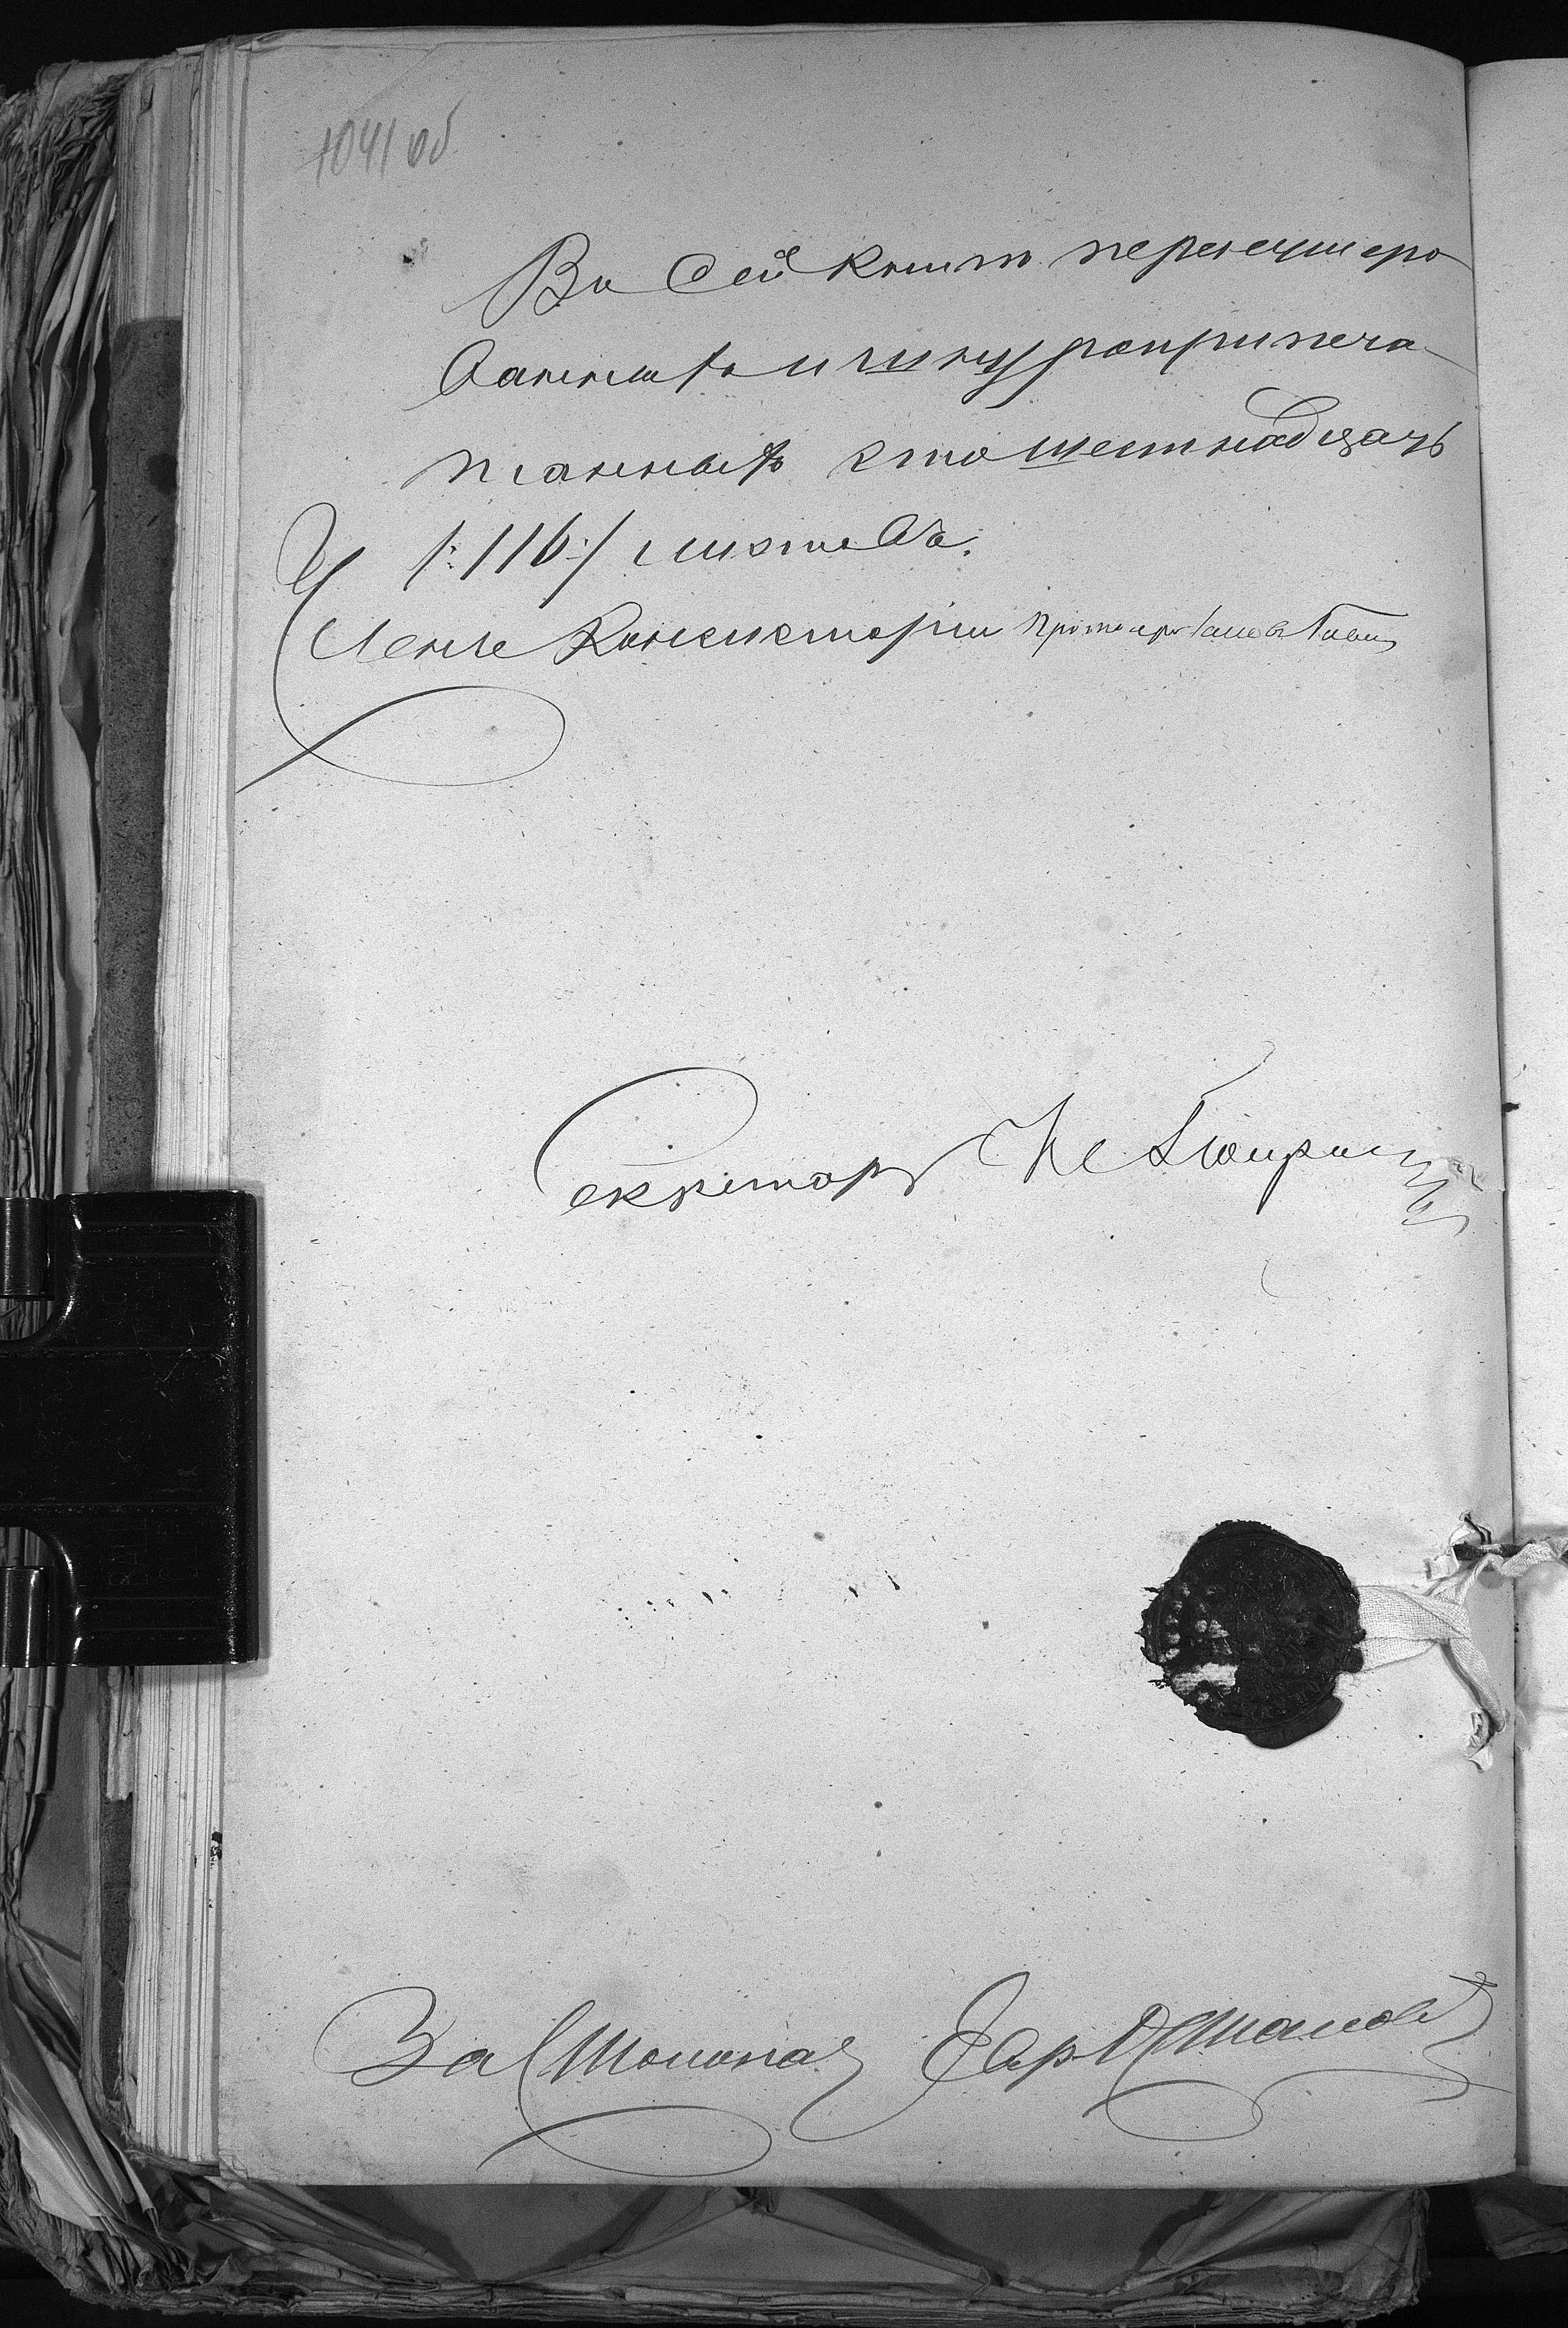 1041 об
Въ сей книгѣ перенумеро
ванныхъ и шнуроприпеча
танныхъ сто шестнадцать
/:116:/ листовъ.
Членъ Консисторіи Протоіерей
Секретарь
За Столонач